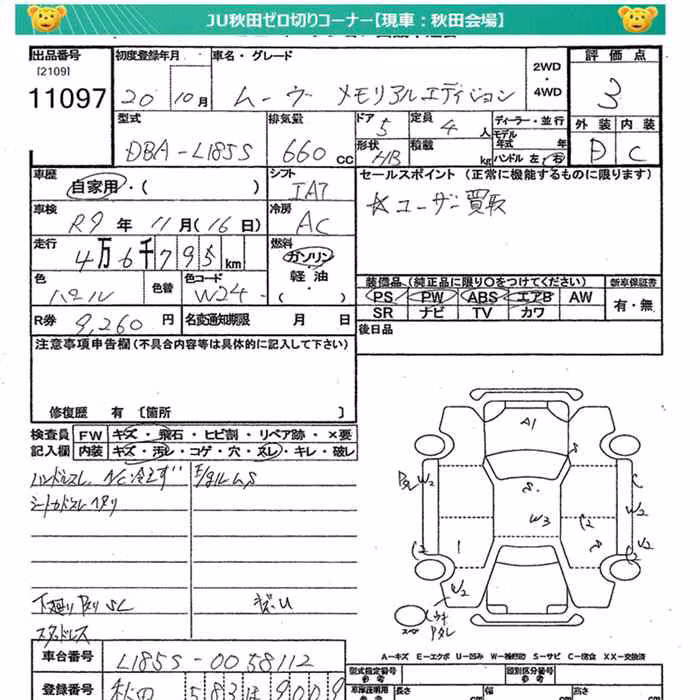 JU秋田ゼロ切りコーナー【現車：秋田会場】
出品番号
[2109]
11097
初度登録年月
20年 10月
車名・グレード
ムーヴ メモリアルエディション
2WD
・
4WD
評価点
3
外装 内装
D C
型式
DBA-L185S
排気量
660 CC
ドア 5
形状 HB
定員 4 人
積載 kg
ディーラー・並行
モデル年式 年
ハンドル 左・右
車歴
自家用・( )
シフト
IA7
車検
R9 年 11月(16日)
冷房
AC
走行
4万6千795 km
燃料
ガソリン
・
軽油
( )
色
パール
色替
色コード
W24
R券 9,260 円
名変通知期限 月 日
セールスポイント (正常に機能するものに限ります)
☆ユーザー買取
装備品 (純正品に限り○をつけてください)
新車保証書
PS PW ABS エアB AW
SR ナビ TV カワ
有・無
後日品
注意事項申告欄(不具合内容等は具体的に記入して下さい)
修復歴 有 [箇所 ]
検査員記入欄
FW キズ・飛石・ヒビ割・リペア跡・×要
内装 キズ・汚レ・コゲ・穴・スレ・キレ・破レ
ハンドルスレ A/C冷えず
シートカドスレ ヘタリ
下廻りサビ
スタッドレス
A1
W3
W2
C
W2
C2
W2
スペア
A-キズ E-エクボ U-凹み W-補修跡 S-サビ C-腐食 XX-交換済
車台番号
L185S-0058112
登録番号
秋田 583 ほ 9009
型式指定番号
参考
類別区分番号
参考
車庫証明用
参考
長さ cm
幅 cm
高さ cm